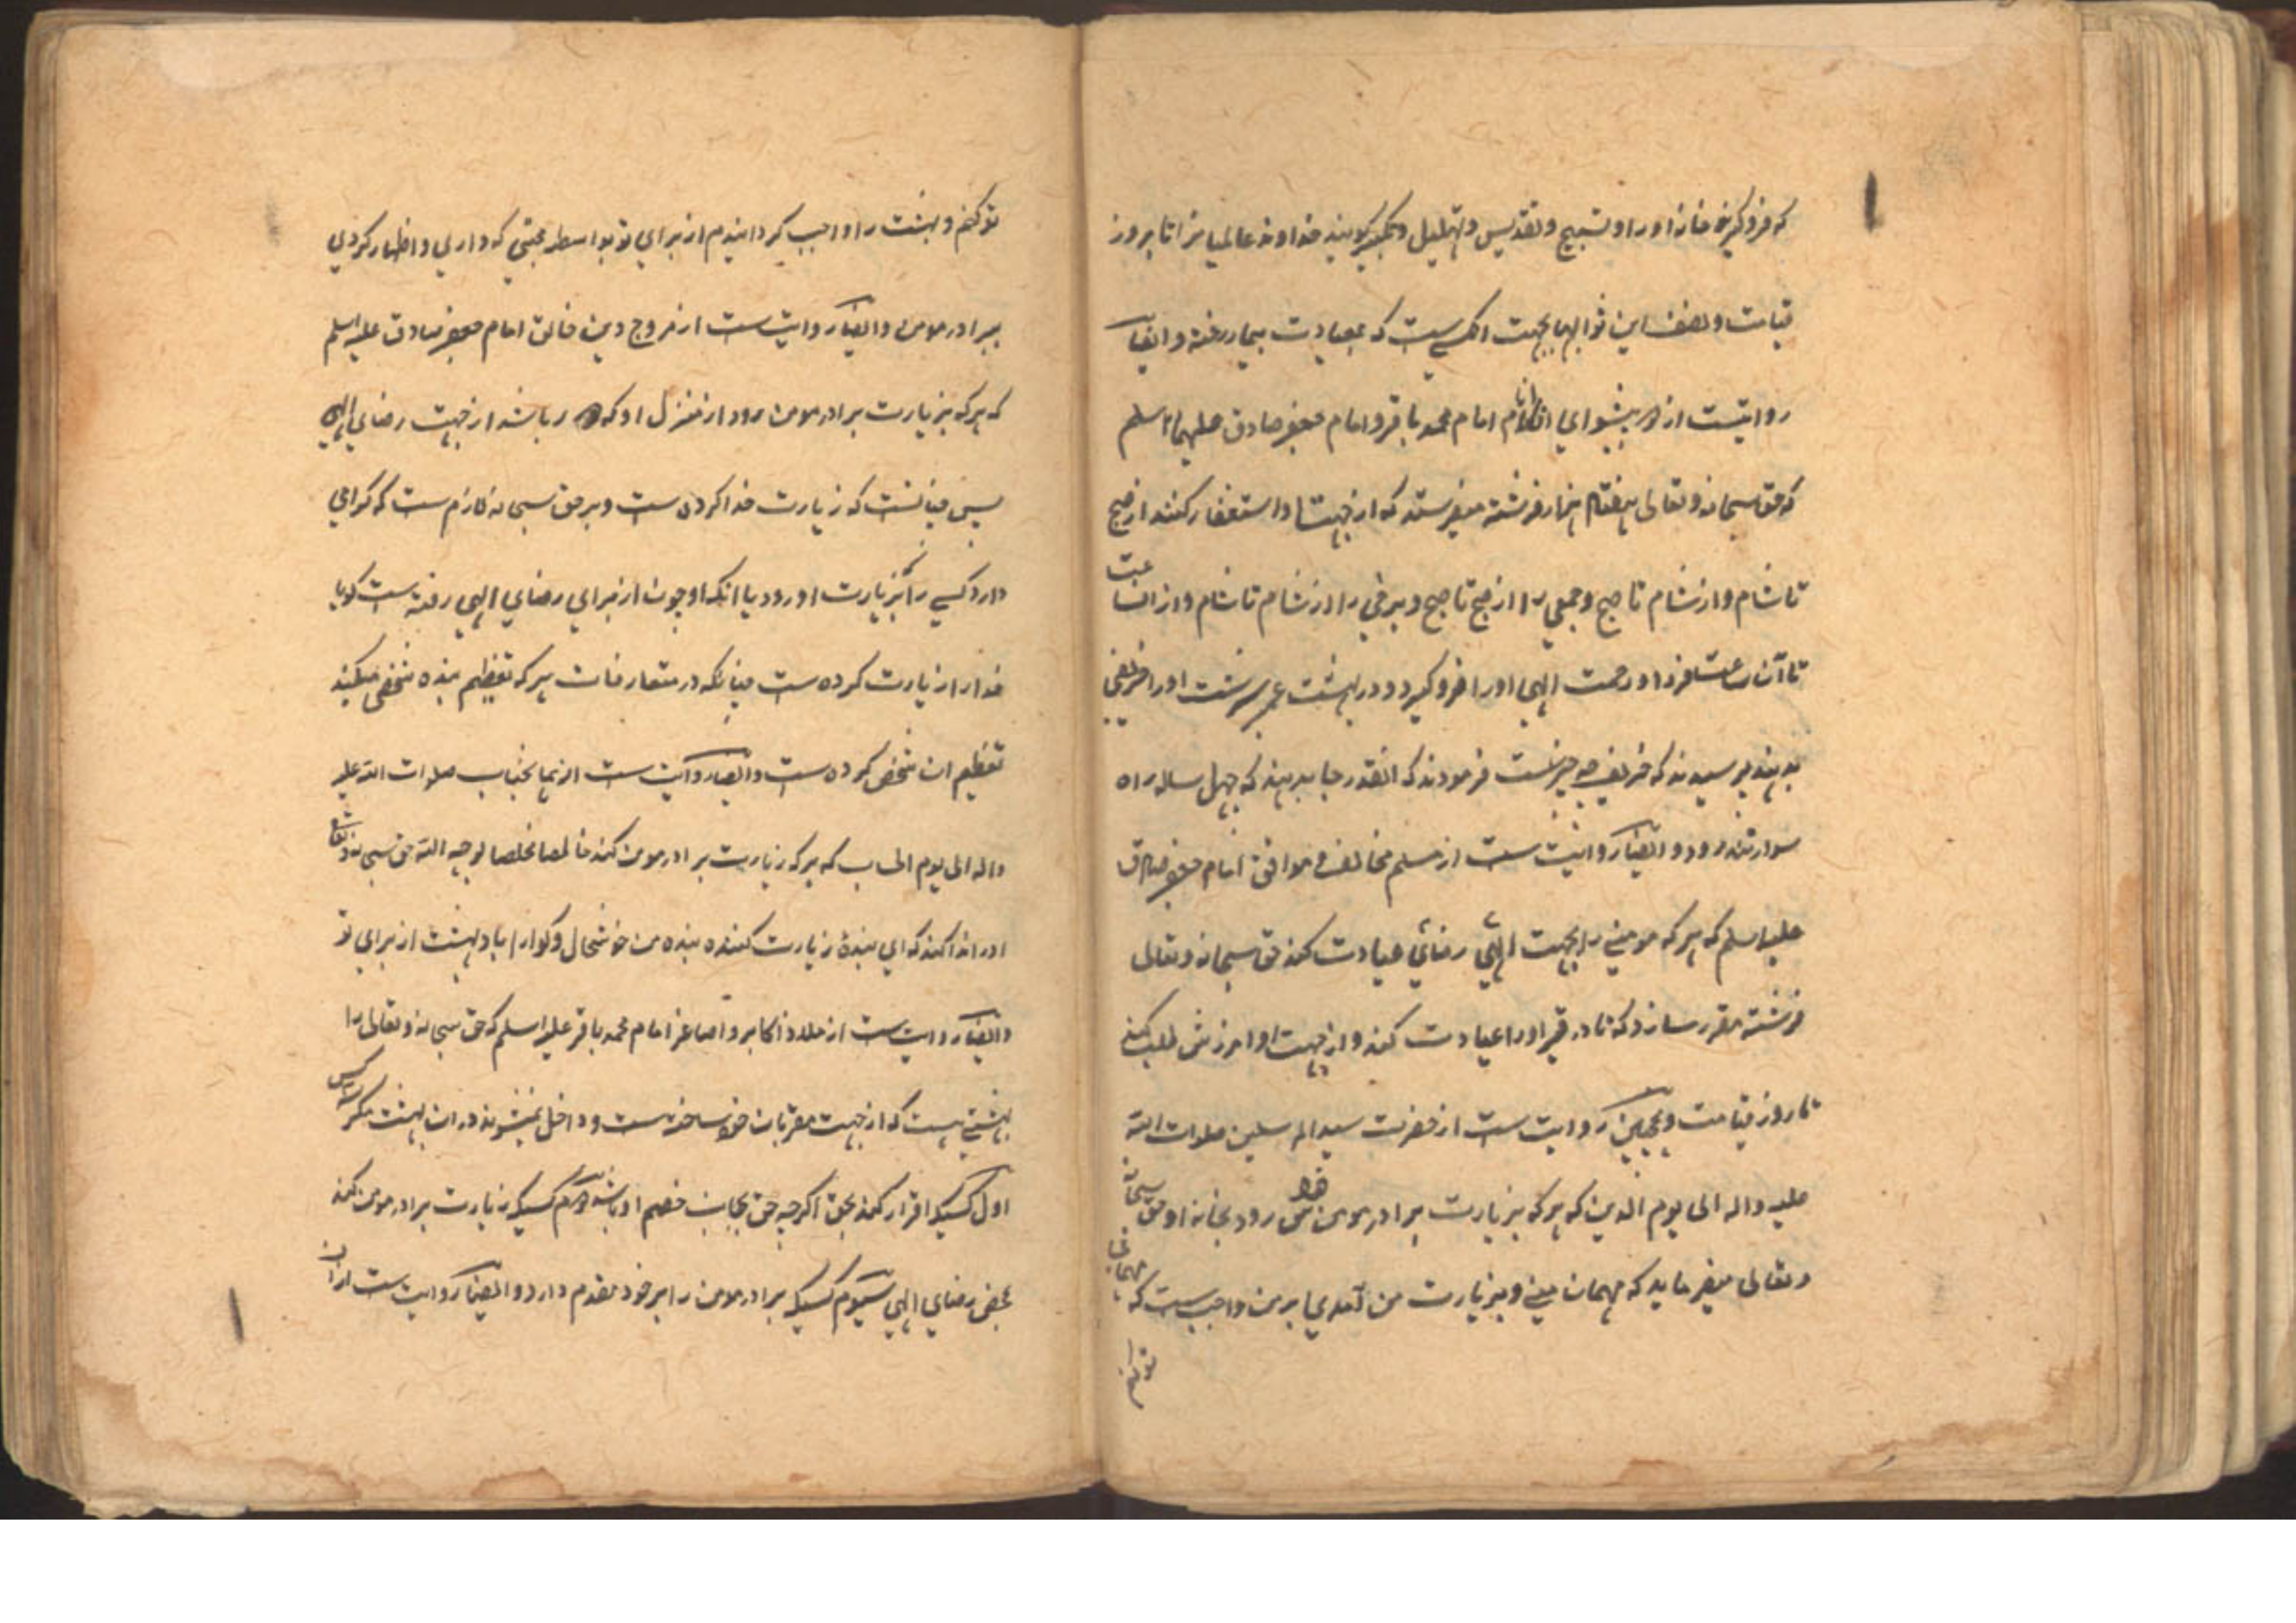 که فروگیرند خانه او را و تسبیح و تقدیس و تهلیل و تکبیر گویند خداوند عالمیانرا تا بروز
قیامت و نصف این ثوابها بجهت انکسی ست که بعیادت بیمار رفته و ایضاً
روایتست از دو پیشوای انام امام محمد باقر و امام جعفر صادق علیهما السلم
که حق سبحانه و تعالی هفتاد هزار فرشته میفرستد که از جهت او استغفار کنند از صبح
تا شام و از شام تا صبح و جمعی را از صبح تا صبح و برخی را از شام تا شام و از انساعت
تا آن ساعت فردا و رحمت الهی او را فرو گیرد و در بهشت عنبر سرشت او را خریفی
بدهند پرسیدند که خریف چه چیزست فرمودند که انقدر جا بدهند که چهل ساله راه
سوار تند رود و ایضاً روایت ست از مسلم مخالف و موافق امام جعفر صادق
علیه السلم که هر که مومنی را بجهت الهی رضای عیادت کند حق سبحانه و تعالی
فرشته مقرر سازد که تا در قبر او را عیادت کند و از جهت او امرزش طلب کند
تا روز قیامت و همچنین روایت ست از حضرت سید المرسلین صلوات الله
علیه واله الی یوم الدین که هر که بزیارت برادر مومن خود رود بخانه او حق سبحانه
و تعالی میفرماید که مهمان منی و بزیارت من آمدی بر من واجب ست که مهمانی
تو کنم
تو کنم و بهشت را واجب گردانیدم از برای تو بواسطه محبتی که داری و اظهار کردی
ببرادر مومن و ایضاً روایت ست از مروج دین خالق امام جعفر صادق علیه السلم
که هر که بزیارت برادر مومن رود از منزل او که باشد از جهت رضای الهی
پس چنانست که زیارت خدا کرده ست و بر حق سبحانه لازم ست که گرامی
دارد کسی را که بزیارت او رود یا انکه او چون از برای رضای الهی رفته ست گویا
خدا را زیارت کرده ست چنانکه در متعارفات هر که تعظیم بنده شخصی میکند
تعظیم ان شخص کرده ست و ایضاً روایت ست از نجنباب صلوات الله علیه
واله الی یوم الحساب که هر که زیارت برادر مومن کند خالصا مخلصا لوجه الله حق سبحانه و تعالی
او را ندا کند که ای بندهٔ زیارت کننده بنده من خوشحال و گوارا باد بهشت از برای تو
و ایضاً روایت ست از ملاذ اکابر و اصاغر امام محمد باقر علیه السلم که حق سبحانه و تعالی را
بهشتی هست که از جهت مقربان خود ساخته ست و داخل نمیشوند در ان بهشت مگر سه کس
اول کسیکه اقرار کند بحق اگرچه حق بجانب خصم او باشد دوم کسیکه زیارت برادر مومن کند
بمحض رضای الهی سیوم کسیکه برادر مومن را بر خود مقدم دارد و ایضاً روایت ست از ان